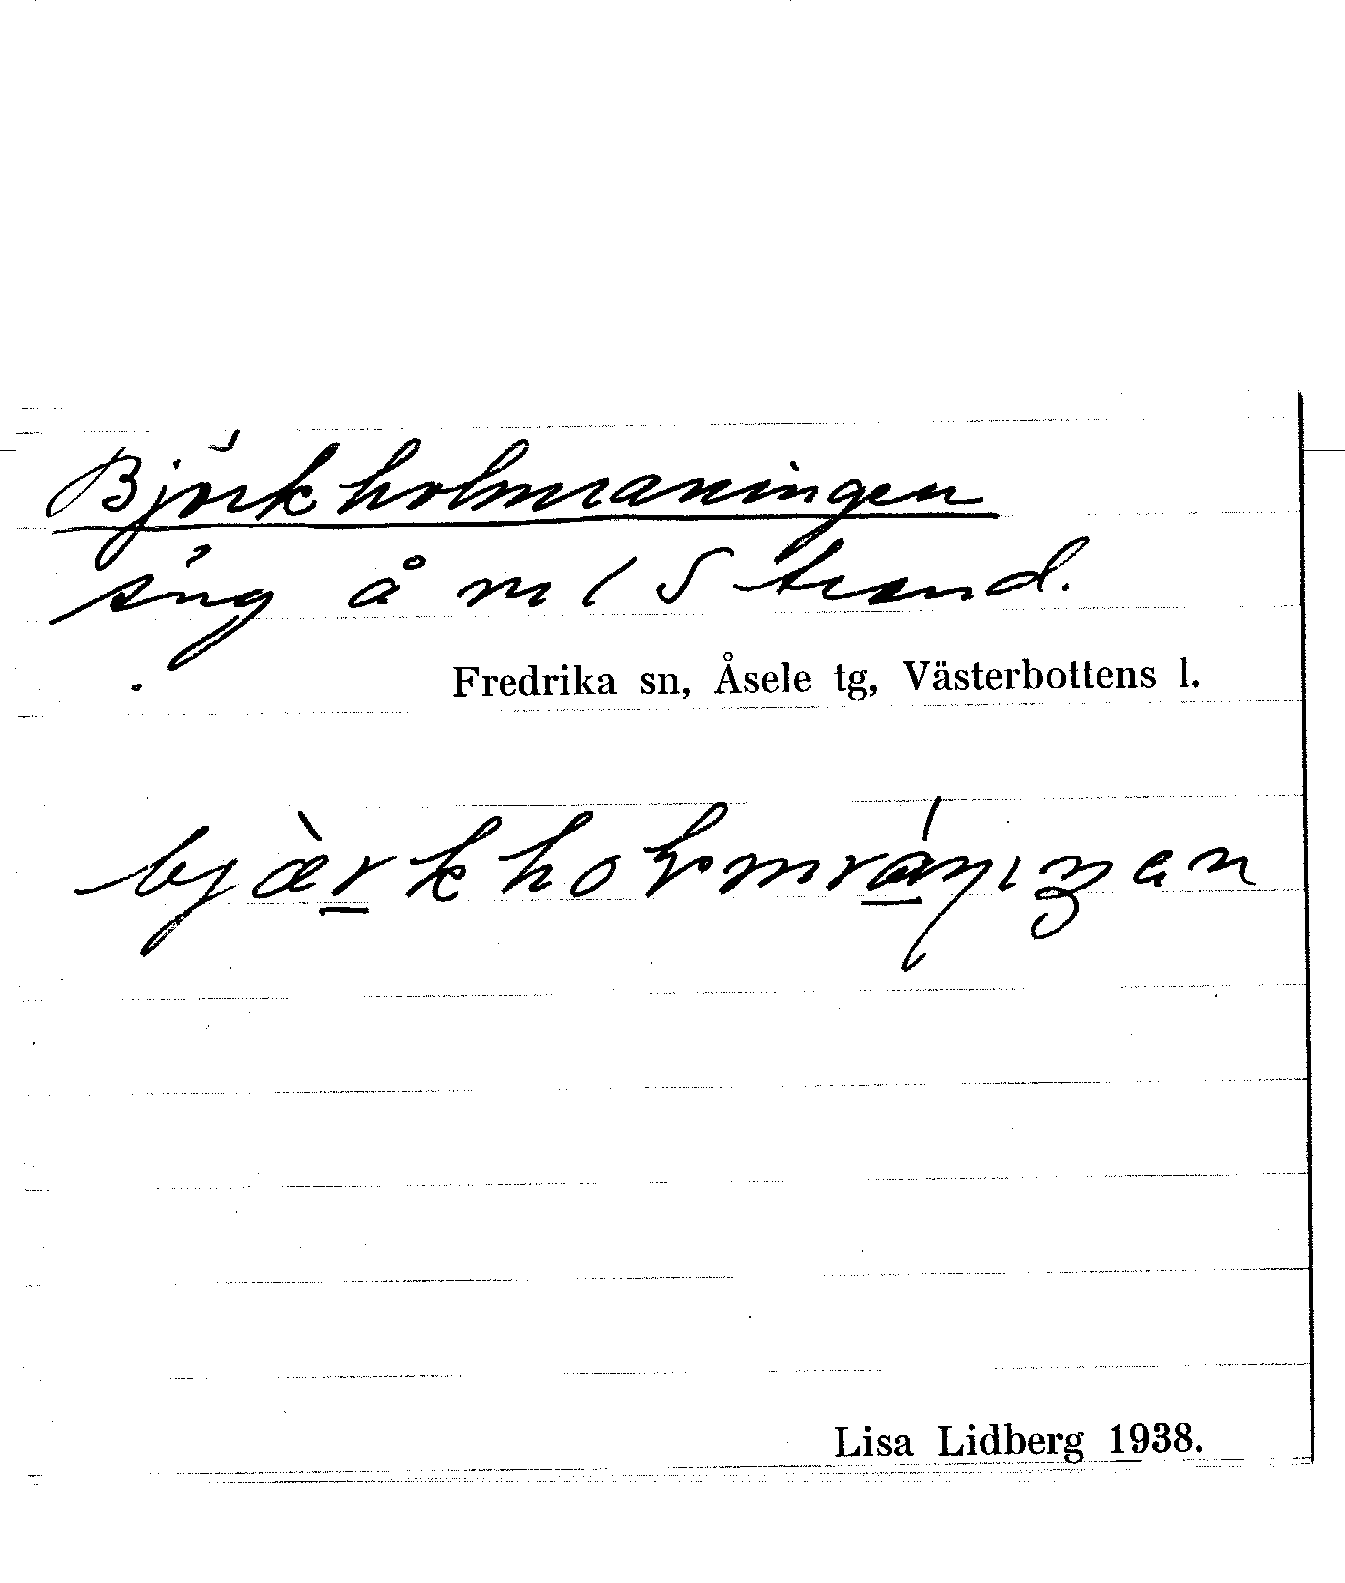 Björkholmraningen
äng å m / Strand.
Fredrika sn, Åsele tg, Västerbottens l.
Lisa Lidberg 1938.